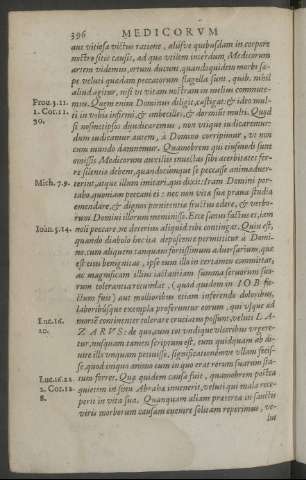 396 MEDICORVM
aut vitiosa victus ratione, aliisve quibusdam in corpore
nostro sitis causis, ad quo vsitem interdum Medicorum
artem videmus, ortum ducunt, quandoquidem morbi sæ-
pe veluti quædam peccatorum flagella sunt, quib. nihil
aliud agitur, nisi vt vitam nostram in melius commute-
Prou. 3. 11. mus. Quem enim Dominus diligit, castigat: & ideo mul-
1. Cor. 11. ti in vobis infirmi, & imbecilles, & dormiũt multi. Quod
30. si nosmetipsos dijudicaremus, non vtique iudicaremur:
dum iudicamur autem, à Domino corripimur, vt non
cum mundo damnemur. Quamobrem qui eiusmodi sunt
omissis Medicorum auxilijs inuectas sibi acerbitates fer-
re silentio debent, quandocunque se peccasse animaduer-
Mich. 7. 9. terint, atque illum imitari, qui dixit: Iram Domini por-
tabo, quoniam peccaui ei: nec non vita sua praua studia
emendare, & dignos pœnitentia fructus edere, & verbo-
rum Domini illorum meminisse. Ecce sanus factus es, iam
Ioãn. 5. 14. noli peccare, ne deterius aliquid tibi contingat. Quin est,
quando diabolo hæc ita deposcente permittitur à Domi-
no, cum aliquem tanquam fortissimum aduersarium, quæ
est eius benignitas, ipse cum illo in certamen committat,
ac magnificam illius iactantiam summa seruorum suo-
rum tolerantia recundat, (quod quidem in IOB fa-
ctum fuit) aut mulieribus etiam inferendo doloribus,
laboribusque exempla proferuntur eorum, qui vsque ad
mortẽ contineri tolerare cruciatum possunt, veluti LA-
Luc. 16. ZARVS: de quo, cum tot vndique vlceribus vrgere-
20. tur, nusquam tamen scriptum est, eum quidquam ab di-
uite illo vnquam petiuisse,
Luc. 16. 22. tum ferret. Quæ quidem causa fuit, quamobrem postea
2. Cor. 12. quietem in sinu Abraha inuenerit, veluti qui mala rece-
8. perit in vita sua. Quanquam aliam præterea in sanctis
viris morborum causam euenire solitam reperimus, ve-
lut